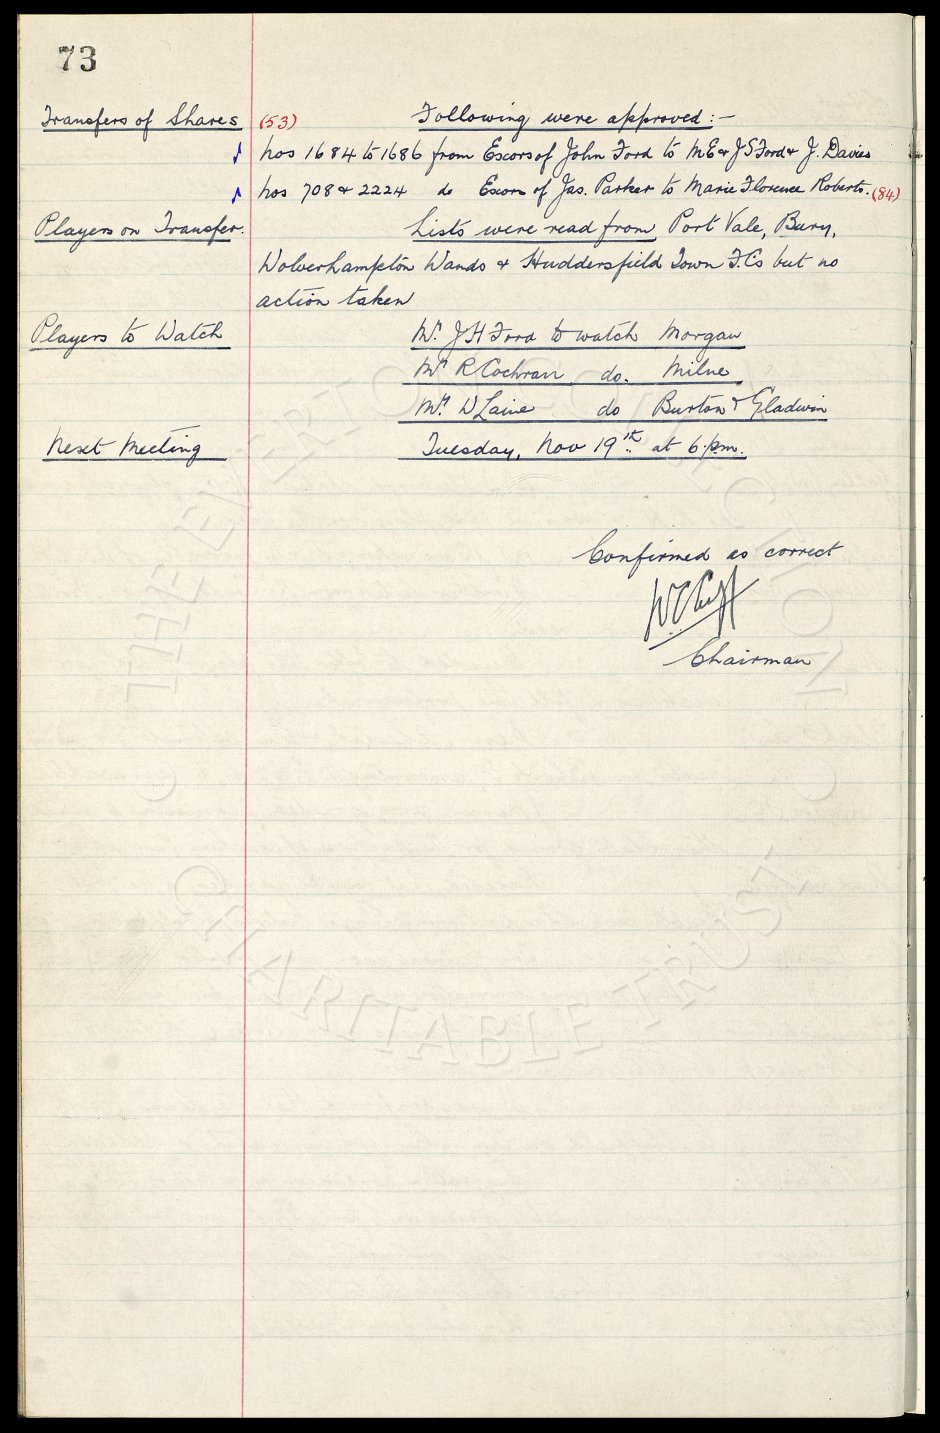 73
Transfers of Shares (53) Following were approved :-
Nos 1684 to 1686 from Excors of John Ford to M E & J S Ford & J. Davies
Nos 708 & 2224 do Excors of Jas. Parker to Marie Florence Roberts. (84)
Players on Transfer. Lists were read from Port Vale, Bury,
Wolverhampton Wands & Huddersfield Town F.Cs but no
action taken
Players to Watch Mr. J H Ford to watch Morgan
Mr R Cochran do. Milne
Mr. W Laine do Burton & Gladwin
Next Meeting Tuesday, Nov 19th. at 6 p.m.
Confirmed as correct
W C Cuff
Chairman
THE EVERTON COLLECTION
CHARITABLE TRUST